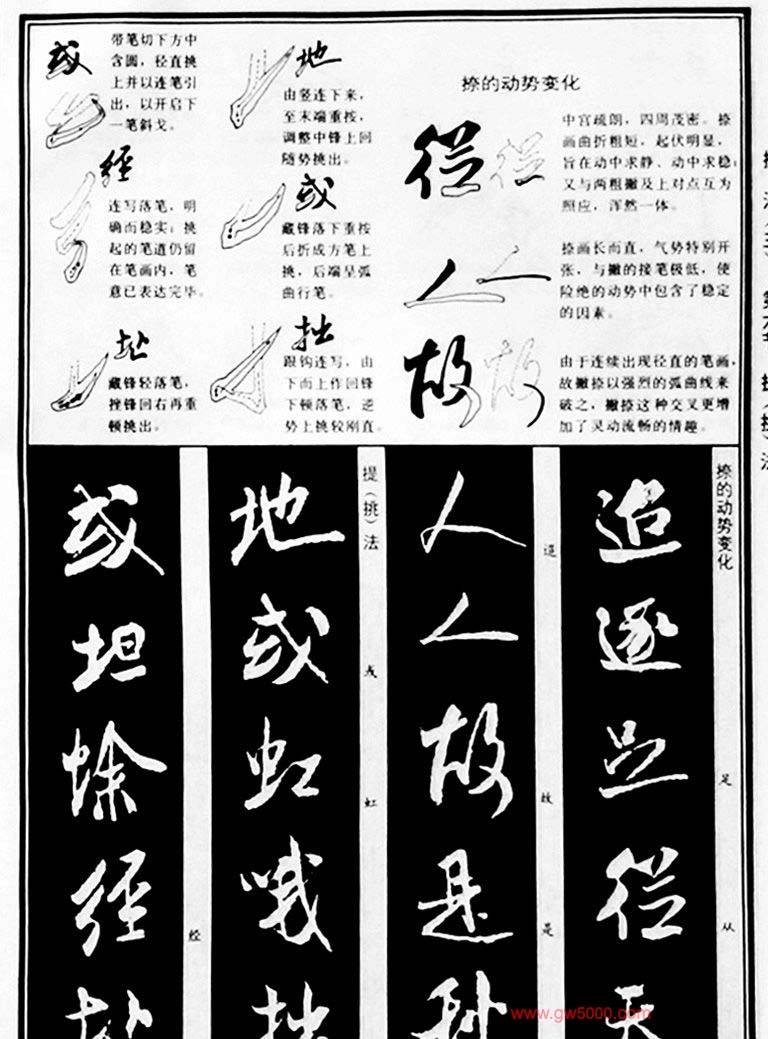 或
带笔切下方中
含圆，径直挑
上并以连笔引
出，以开启下
一笔斜戈。
經
连写落笔，明
确而稳实；挑
起的笔道仍留
在笔画内，笔
意已表达完毕。
址
藏锋轻落笔，
挫锋回右再重
顿挑出。
地
由竖连下来，
至末端重按，
调整中锋上回
随势挑出。
或
藏锋落下重按
后折成方笔上
挑，后端呈弧
曲行笔。
拙
跟钩连写，由
下而上作回锋
下顿落笔，逆
势上挑较刚直。
捺的动势变化
從
中宫疏朗，四周茂密。捺
画曲折粗短，起伏明显，
旨在动中求静、动中求稳；
又与两根撇及上对点互为
照应，浑然一体。
人
捺画长而直，气势特别开
张，与撇的接笔极低，使
险绝的动势中包含了稳定
的因素。
故
由于连续出现径直的笔画，
故撇捺以强烈的弧曲线来
破之，撇捺这种交叉更增
加了灵动流畅的情趣。
捺的动势变化
足
从
追
逐
足
從
天
故
是
人
人
故
是
提（挑）法
或
虹
地
或
虹
哦
拙
经
或
坦
經
址
www.gw5000.com